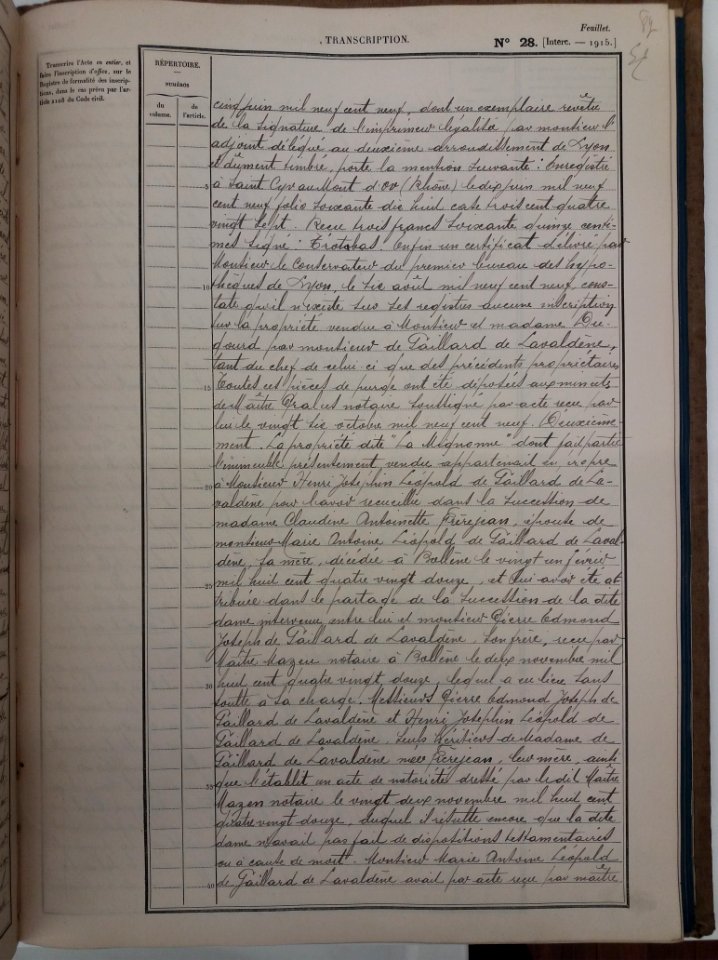 Feuillet.
TRANSCRIPTION.
N° 28. [Interc. — 1915.]
Transcrire l'Acte en entier, et
faire l'inscription d'office, sur le
Registre de formalité des inscrip-
tions, dans le cas prévu par l'ar-
ticle 2108 du Code civil.
RÉPERTOIRE.
NUMÉROS
du volume.
de l'article.
cinq juin mil neuf cent neuf, dont un exemplaire revêtu
de la signature de l'imprimeur légalisée par monsieur l'
adjoint délégué au deuxième arrondissement de Lyon
et dûment timbré, porte la mention suivante : Enregistré
5
à Saint Cyr au Mont d'Or (Rhône) le dix juin mil neuf
cent neuf folio soixante dix huit case trois cent quatre
vingt sept. Reçu trois francs soixante quinze centi-
mes signé : Trotobas. Enfin un certificat délivré par
Monsieur le Conservateur du premier bureau des hypo-
10
thèques de Lyon, le six août mil neuf cent neuf, cons-
tate qu'il n'existe sur ses registres aucune inscription
sur la propriété vendue à Monsieur et madame
gourd par monsieur de Gaillard de Lavaldène,
tant du chef de celui ci que des précédents propriétaires
15
Toutes ces pièces de purge ont été déposées aux minutes
de Maître Pralus notaire soussigné par acte reçu par
lui le vingt six octobre mil neuf cent neuf. Deuxième-
ment. La propriété dite "La Mignonne" dont fait partie
l'immeuble présentement vendu appartenait en propre
20
à Monsieur Henri Joséphin Léopold de Gaillard de La-
valdène pour l'avoir recueillie dans la succession de
madame Claudine Antoinette Frèrejean, épouse de
monsieur Marie Antoine Léopold de Gaillard de Laval-
dène, sa mère, décédée à Bollène le vingt un février
25
mil huit cent quatre vingt douze, et lui avoir été at
tribuée dans le partage de la succession de la dite
dame intervenu entre lui et monsieur Pierre Edmond
Joseph de Gaillard de Lavaldène, son frère, reçu par
Maître Mazen notaire à Bollène le deux novembre mil
30
huit cent quatre vingt douze, lequel a eu lieu sans
soulte à sa charge. Messieurs Pierre Edmond Joseph de
Gaillard de Lavaldène et Henri Joséphin Léopold de
Gaillard de Lavaldène, seuls héritiers de Madame de
Gaillard de Lavaldène née Frèrejean, leur mère, ainsi
35
que l'établit un acte de notoriété dressé par le dit Maître
Mazen notaire le vingt deux novembre mil huit cent
quatre vingt douze, duquel il résulte encore que la dite
dame n'avait pas fait de dispositions testamentaires
ou à cause de mort. Monsieur Marie Antoine Léopold
40
de Gaillard de Lavaldène avait par acte reçu par maître